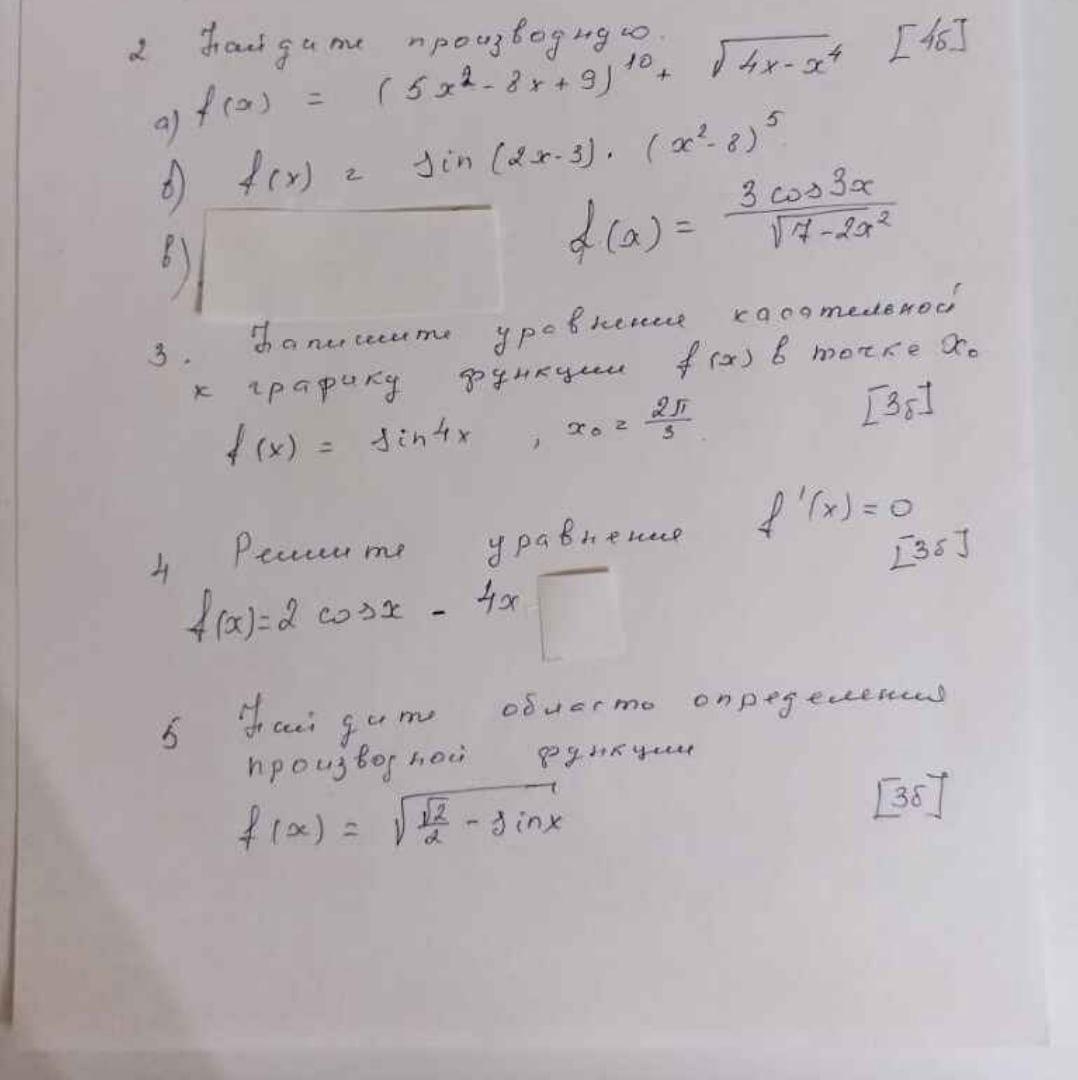 2 Найдите производную. [4б]
а) f(x) = (5x² - 8x + 9)¹⁰ + √(4x - x⁴)
б) f(x) = sin(2x-3) · (x² - 8)⁵
в) f(x) = 3 cos3x / √(7-2x²)
3. Запишите уравнение касательной
к графику функции f(x) в точке x₀
f(x) = sin4x , x₀ = 2π/3 . [3б]
4 Решите уравнение f'(x) = 0
[3б]
f(x) = 2 cosx - 4x
5 Найдите область определения
производной функции
f(x) = √(√2/2 - sinx) [3б]